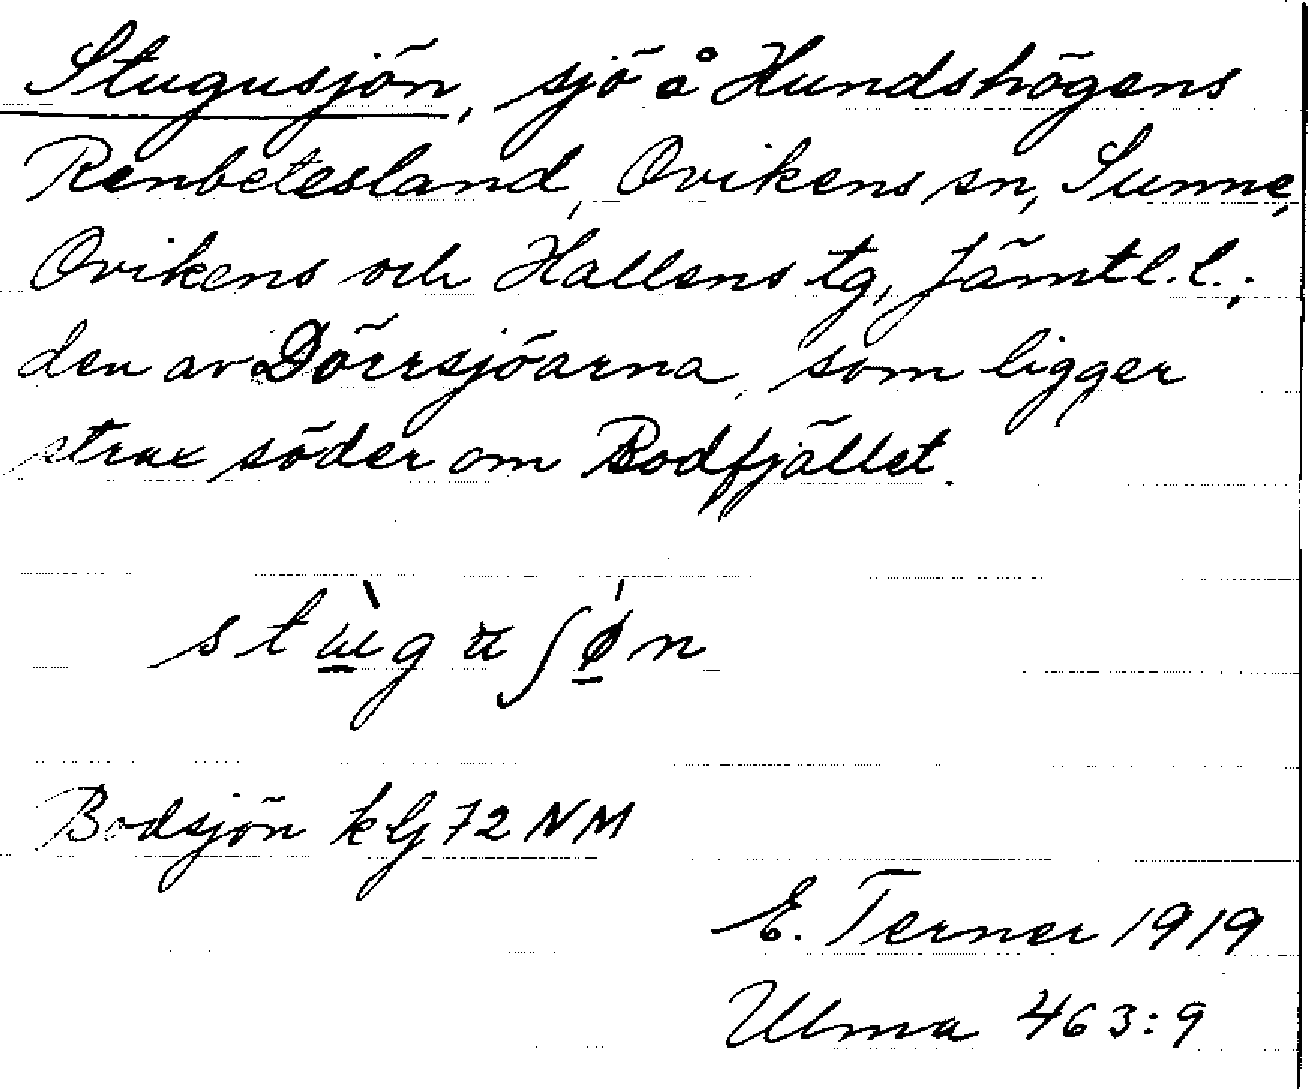 Stugusjön, sjö å Hundshögens
Renbetesland, Ovikens sn, Sunne,
Ovikens och Hallens tg, Jämtl.l.;
den av Dörrsjöarna, som ligger
strax söder om Bodfjället.
Bodsjön klj 72 NM
E. Terner 1919
Ulma 463:9